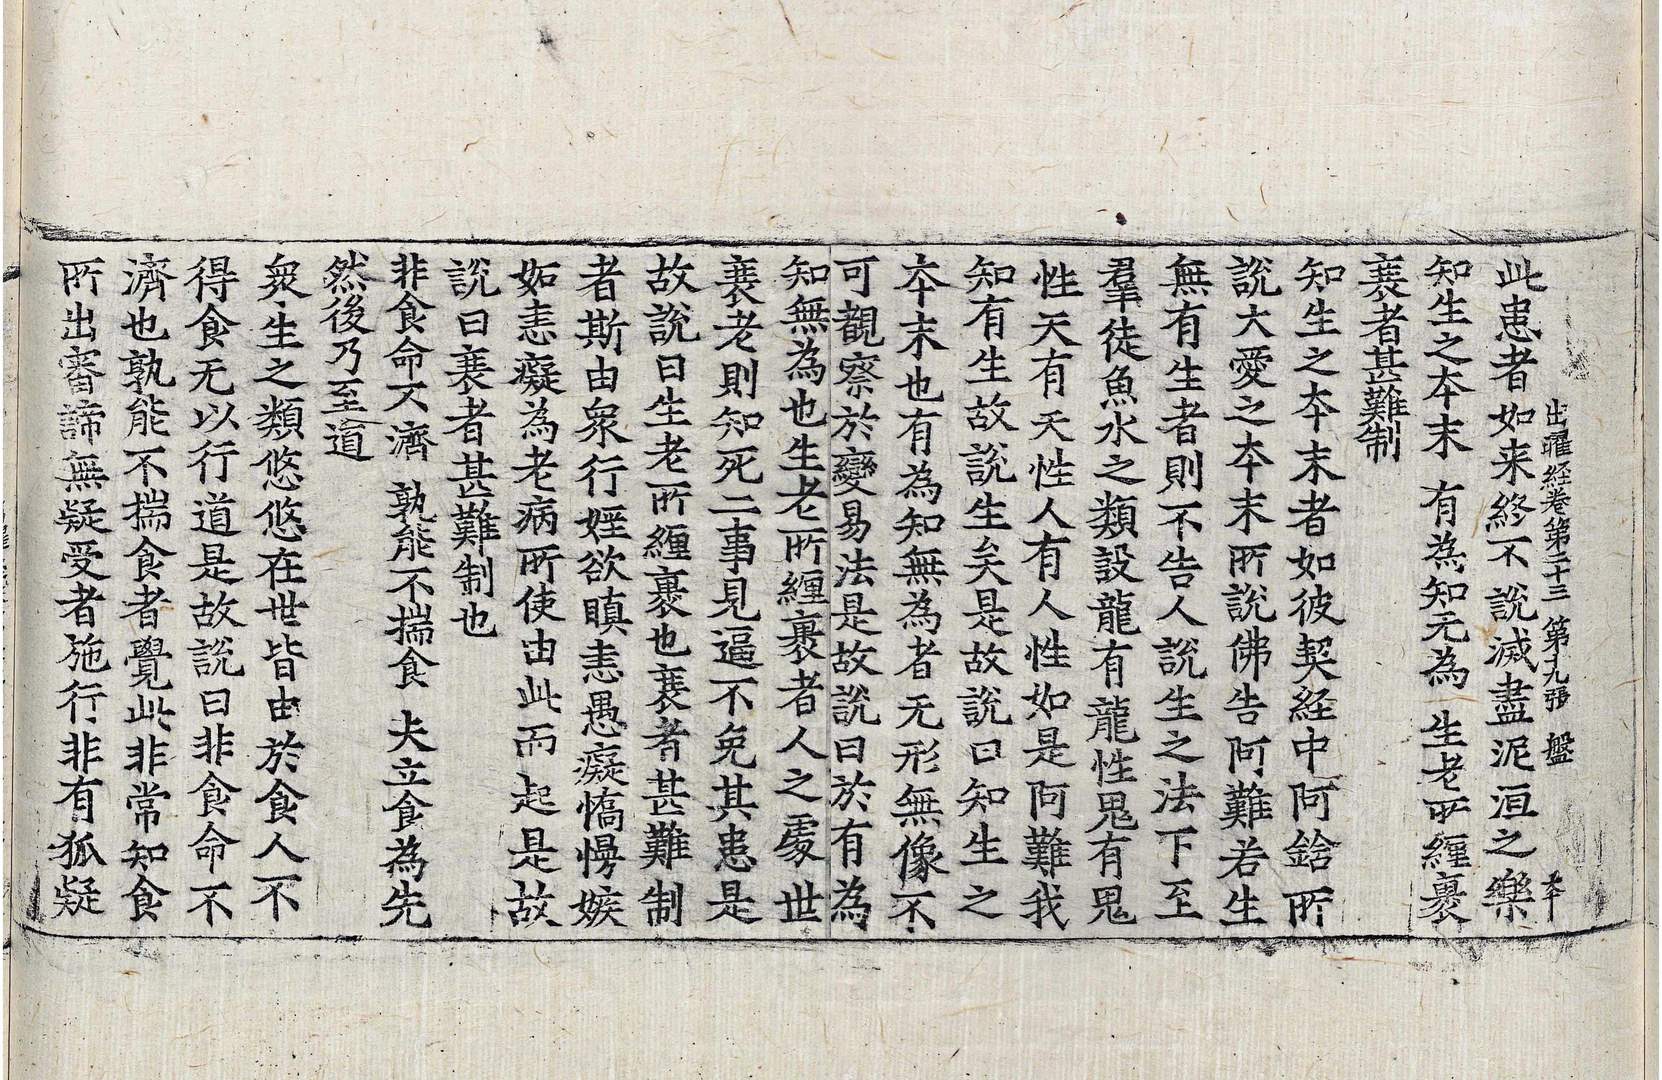 出曜經卷第二十三　第九張　盤　本
此患者如来終不說滅盡泥洹之樂
知生之夲末　有為知无為　生老所纏裹
衰者甚難制
知生之夲末者如彼契経中阿鋡所
說大愛之夲末所說佛告阿難若生
無有生者則不告人說生之法下至
羣徒魚水之類設龍有龍性鬼有鬼
性天有天性人有人性如是阿難我
知有生故說生矣是故說曰知生之
夲末也有為知無為者无形無像不
可覩察於變易法是故說曰於有為
知無為也生老所纏裹者人之處世
衰老則知死二事見逼不免其患是
故說曰生老所纏裹也衰者甚難制
者斯由衆行婬欲瞋恚愚癡憍慢嫉
如恚癡為老病所使由此而起是故
說曰衰者甚難制也
非食命不濟　孰能不揣食　夫立食為先
然後乃至道
衆生之類悠悠在世皆由於食人不
得食无以行道是故說曰非食命不
濟也孰能不揣食者覺此非常知食
所出審諦無疑受者施行非有狐疑